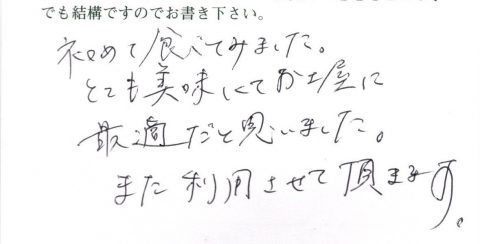 でも結構ですのでお書き下さい。
初めて食べてみました。
とても美味しくてお土産に
最適だと思いました。
また利用させて頂ます。